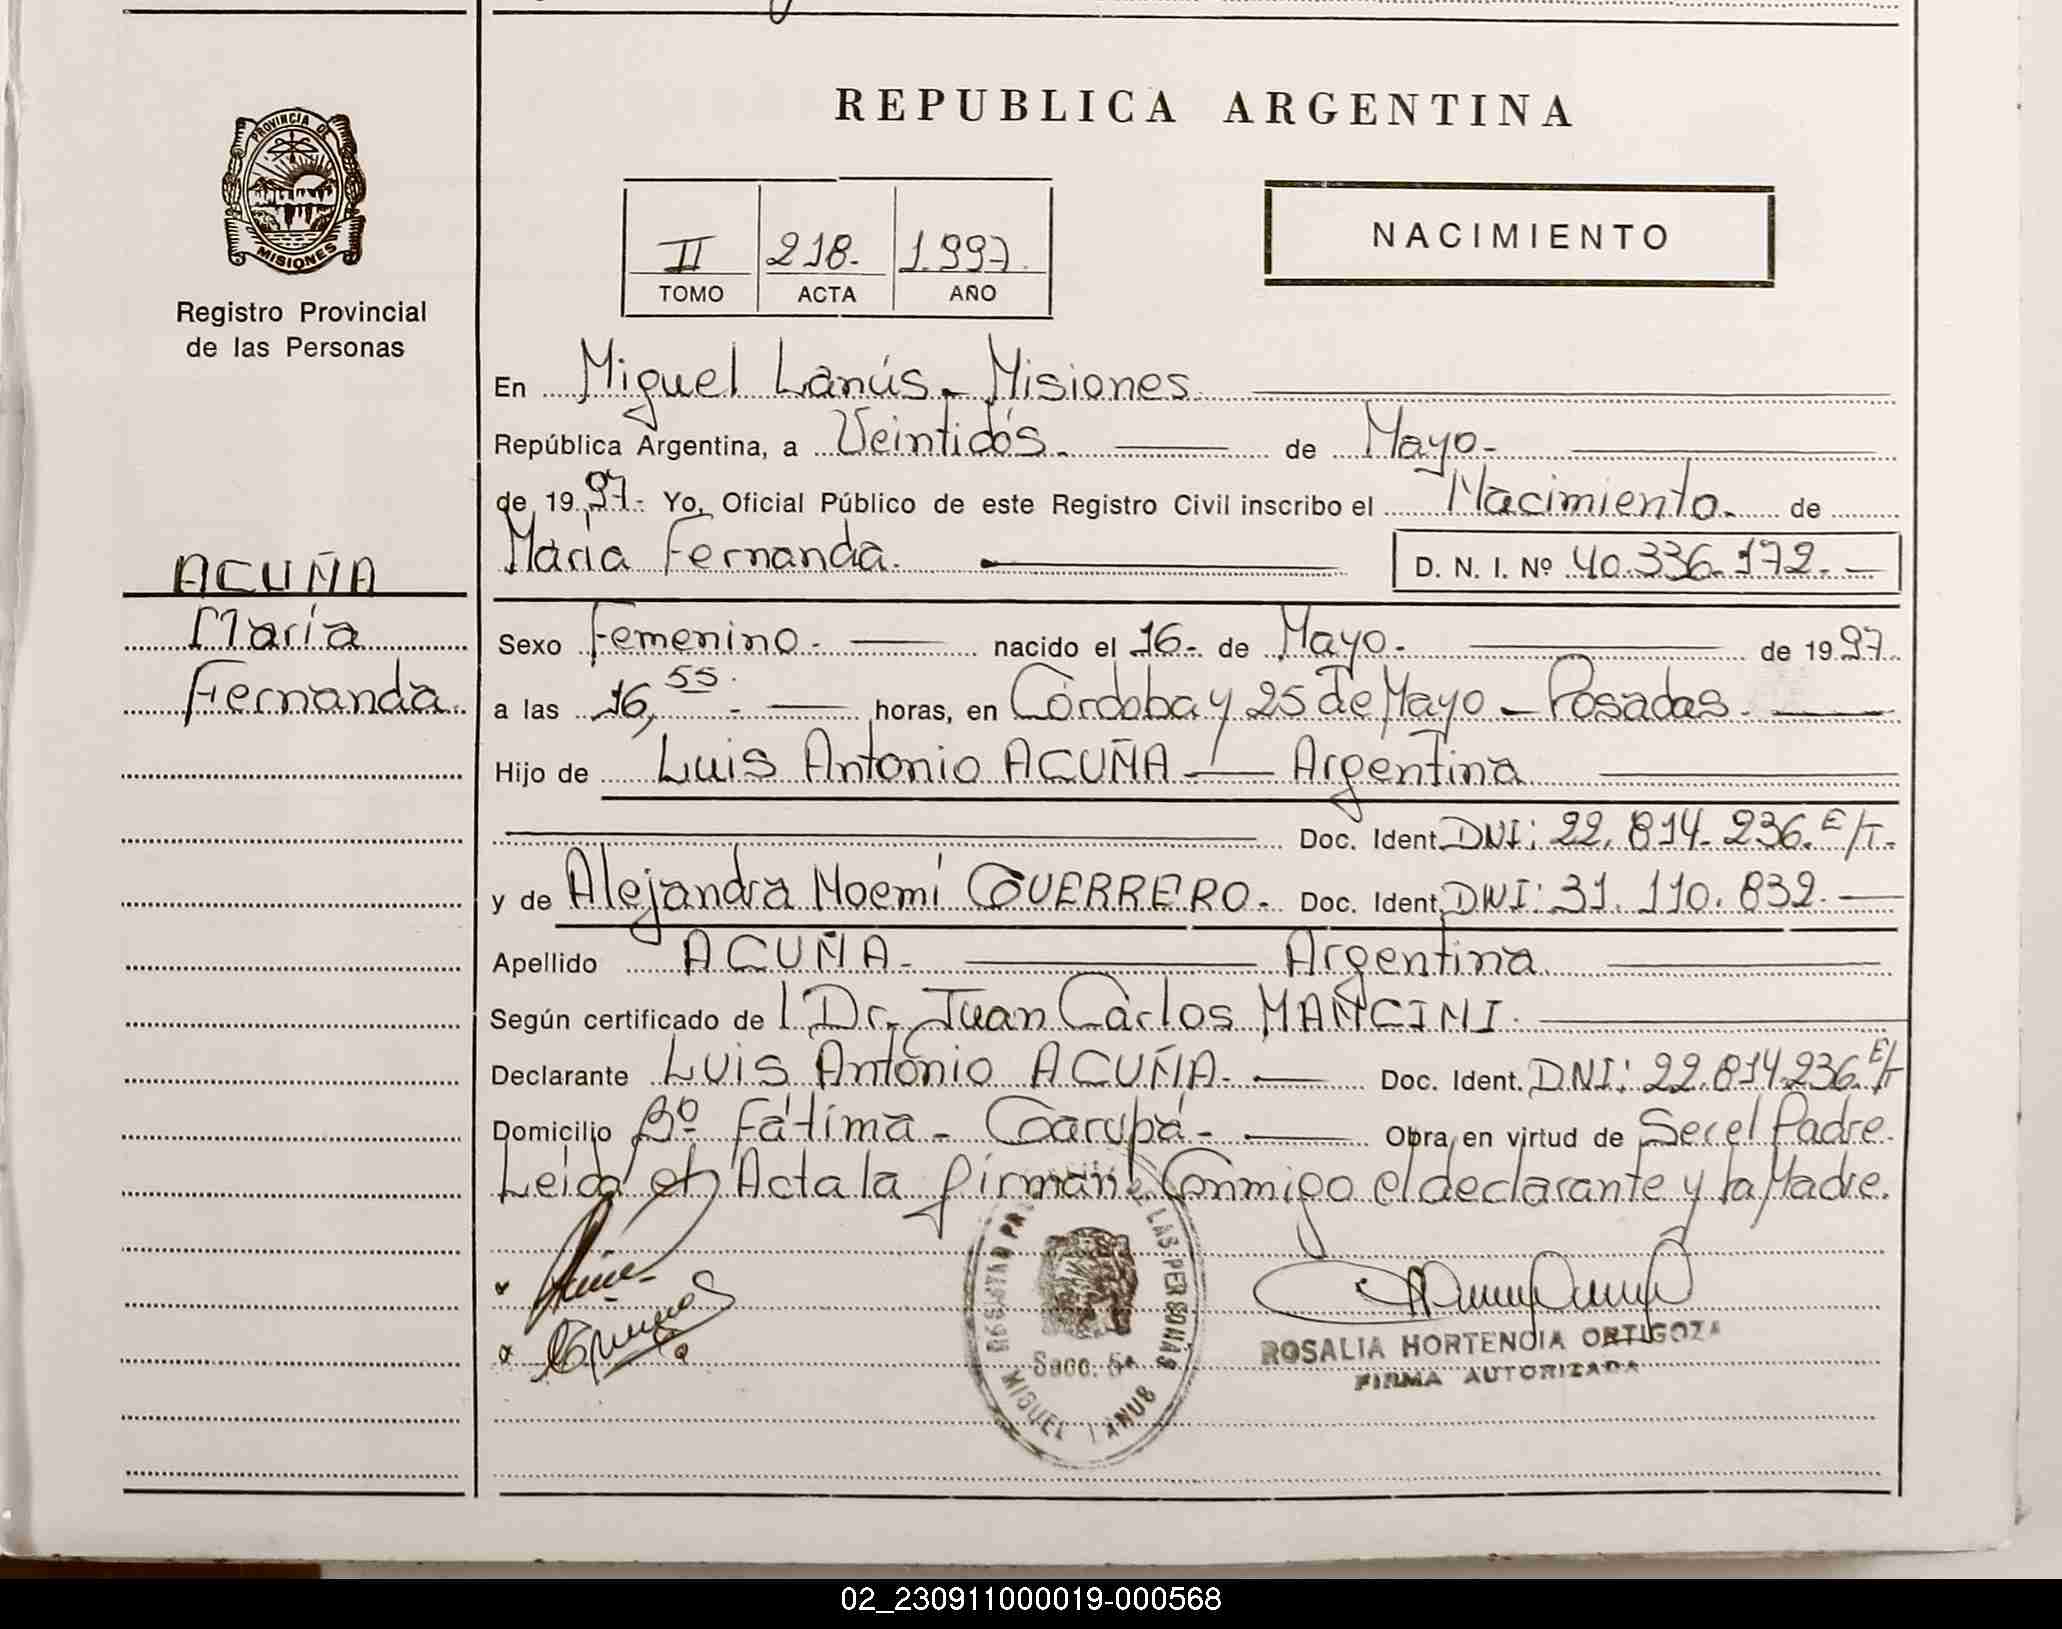 REPUBLICA ARGENTINA
PROVINCIA DE
MISIONES
Registro Provincial
de las Personas
II 218- 1.997.
TOMO ACTA AÑO
NACIMIENTO
En Miguel Lanús - Misiones
República Argentina, a Veintidós. de Mayo-
de 1997- Yo, Oficial Público de este Registro Civil inscribo el Nacimiento. de
María Fernanda. D. N. I. Nº 40.336.172.-
ACUÑA
María
Fernanda.
Sexo Femenino. nacido el 16- de Mayo. de 1997.
a las 16,55. horas, en Córdoba y 25 de Mayo - Posadas.
Hijo de Luis Antonio ACUÑA - Argentina
Doc. Ident. DNI: 22.814.236. E/T.
y de Alejandra Noemí GUERRERO. Doc. Ident. DNI: 31.110.832.-
Apellido ACUÑA. Argentina
Según certificado de l Dr. Juan Carlos MANCINI.
Declarante Luis Antonio ACUÑA. Doc. Ident. DNI: 22.814.236. E/T
Domicilio Bº Fátima - Garupá - Obra en virtud de Ser el Padre.
Leida el Acta la firman Conmigo el declarante y la Madre.
REGISTRO LAS PERSONAS
Secc. 5ª
MIGUEL LANUS
ROSALIA HORTENCIA ORTIGOZA
FIRMA AUTORIZADA
02_230911000019-000568